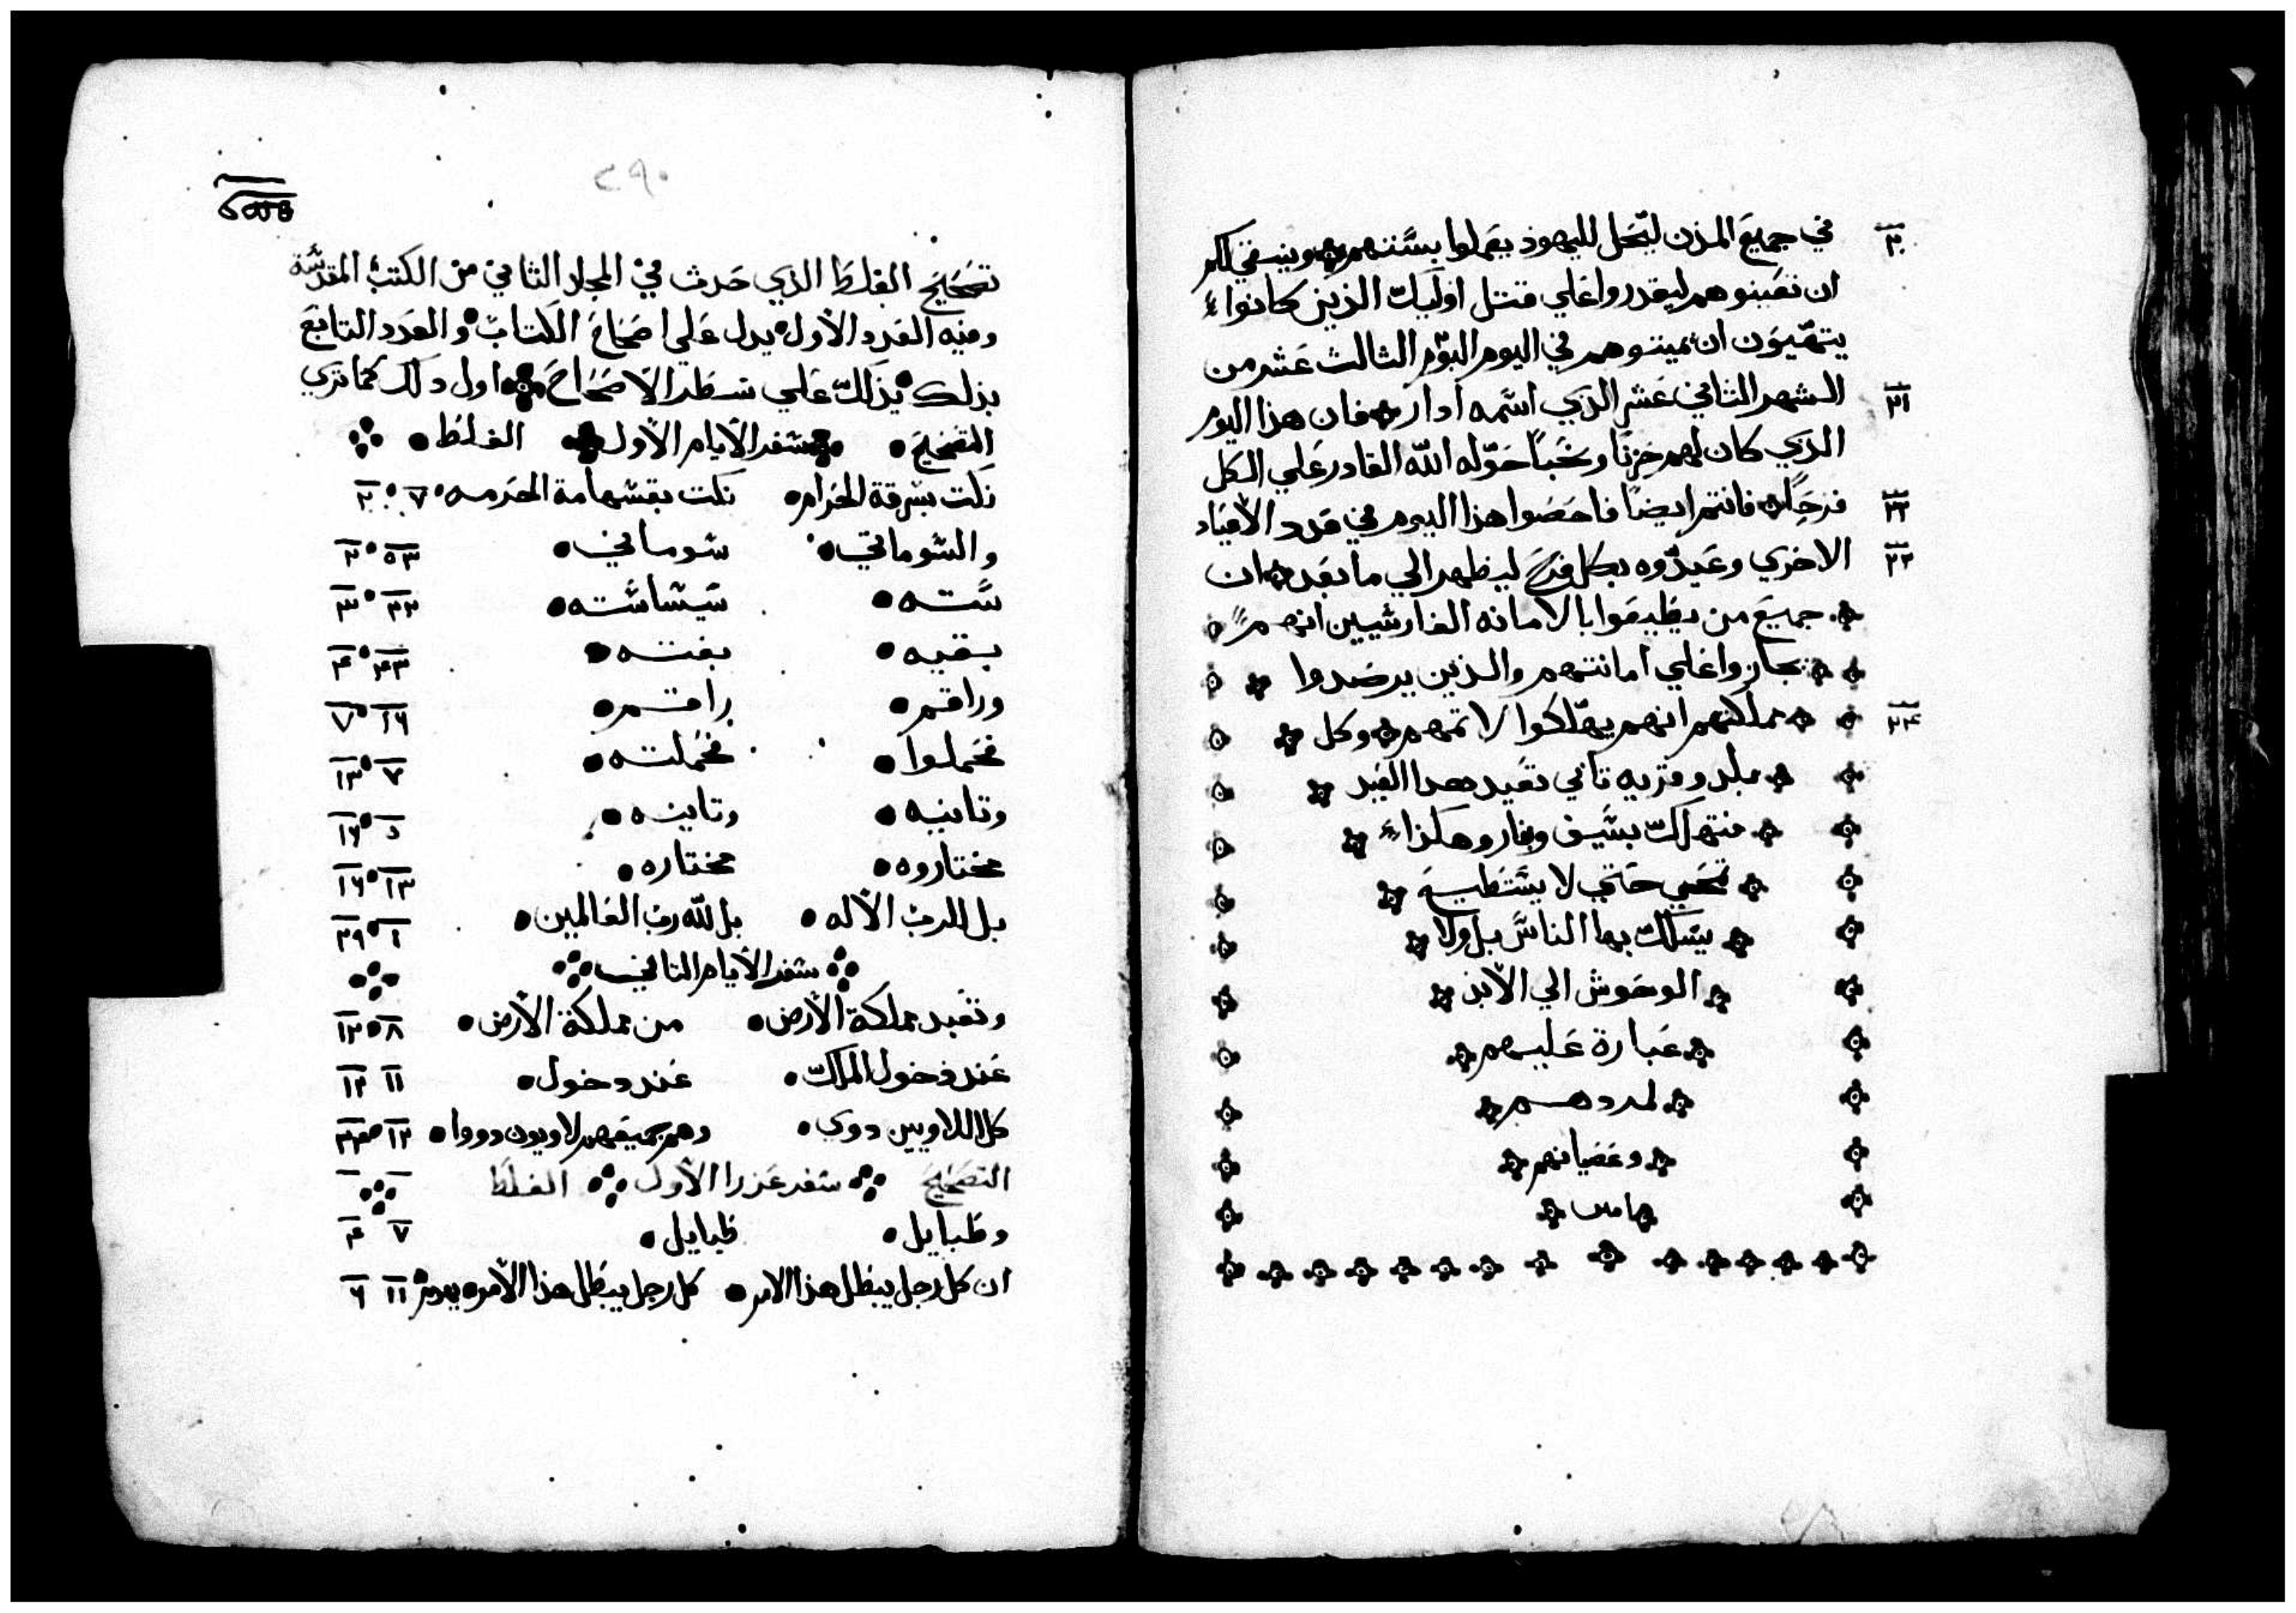 ٢٠ في جميع المدن ليحل لليهود يعملوا بسننهم وينبغي لكم
ان تعينوهم ليقدروا علي قتل اوليك الذين كانوا
يتهيون ان يميتوهم في اليوم اليوم الثالث عشر من
٢١ الشهر الثاني عشر الذي اسمه ادار فان هذا اليوم
الذي كان لهم حزنا ونحبا حوله الله القادر علي الكل
٢٢ فرحا فانتم ايضا فاحصوا هذا اليوم في عدد الاعياد
٢٣ الاخري وعيدوه بكل فرح ليظهر الي ما بعد ان
جميع من يطيعوا بالامانه الفارسيين انهم
يجازوا علي امانتهم والذين يرصدوا
٢٤ مملكتهم انهم يهلكوا لاثمهم وكل
بلد وقريه تابي تعيد هدا العيد
فتهلك بسيف وبنار وهكذا
تمحي حتي لا يستطيع
يسلك بها الناس بل ولا
الوحوش الي الابد
عبارة عليهم
لمردهم
وعصيانهم
امين
٢٩٠
تصحيح الغلط الذي حدث في المجلد الثاني من الكتب المقدسة
وفيه العدد الاول يدل علي اصحاح الكتاب والعدد التابع
بذلك يدلك علي سطر الاصحاح اول دلك كما تري
التصحيح سفر الايام الاول الغلط
نكت بسرقة الحرام نكت بقسهامة المحرمه ٧ ٢
والشوماتي شوماني ٥٣ ٢
سته سيساسته ٢٢ ٣
بقيه بغته ٤٣ ٤
وراقم راقم ١٦ ٧
فحملوا فحملته ٧ ١٣
وتانيه وتاينه ٥ ١٦
مختاروه مختاره ١٣ ١٦
بل للرب الاله بل لله رب العالمين ١ ٢٩
سفر الايام الثاني
وتعبد مملكة الارض من مملكة الارض ٨ ١٢
عند دخول الملك عند دخول ١١ ١٢
كل اللاويين دوي وهم جميعهم لاويون دووا ١٢ ٢٣
التصحيح سفر عزرا الاول الغلط
وطبايل طبايل ٧ ٤
ان كل رجل يبطل هذا الامر كل رجل يبطل هذا الامر ١١ ٦